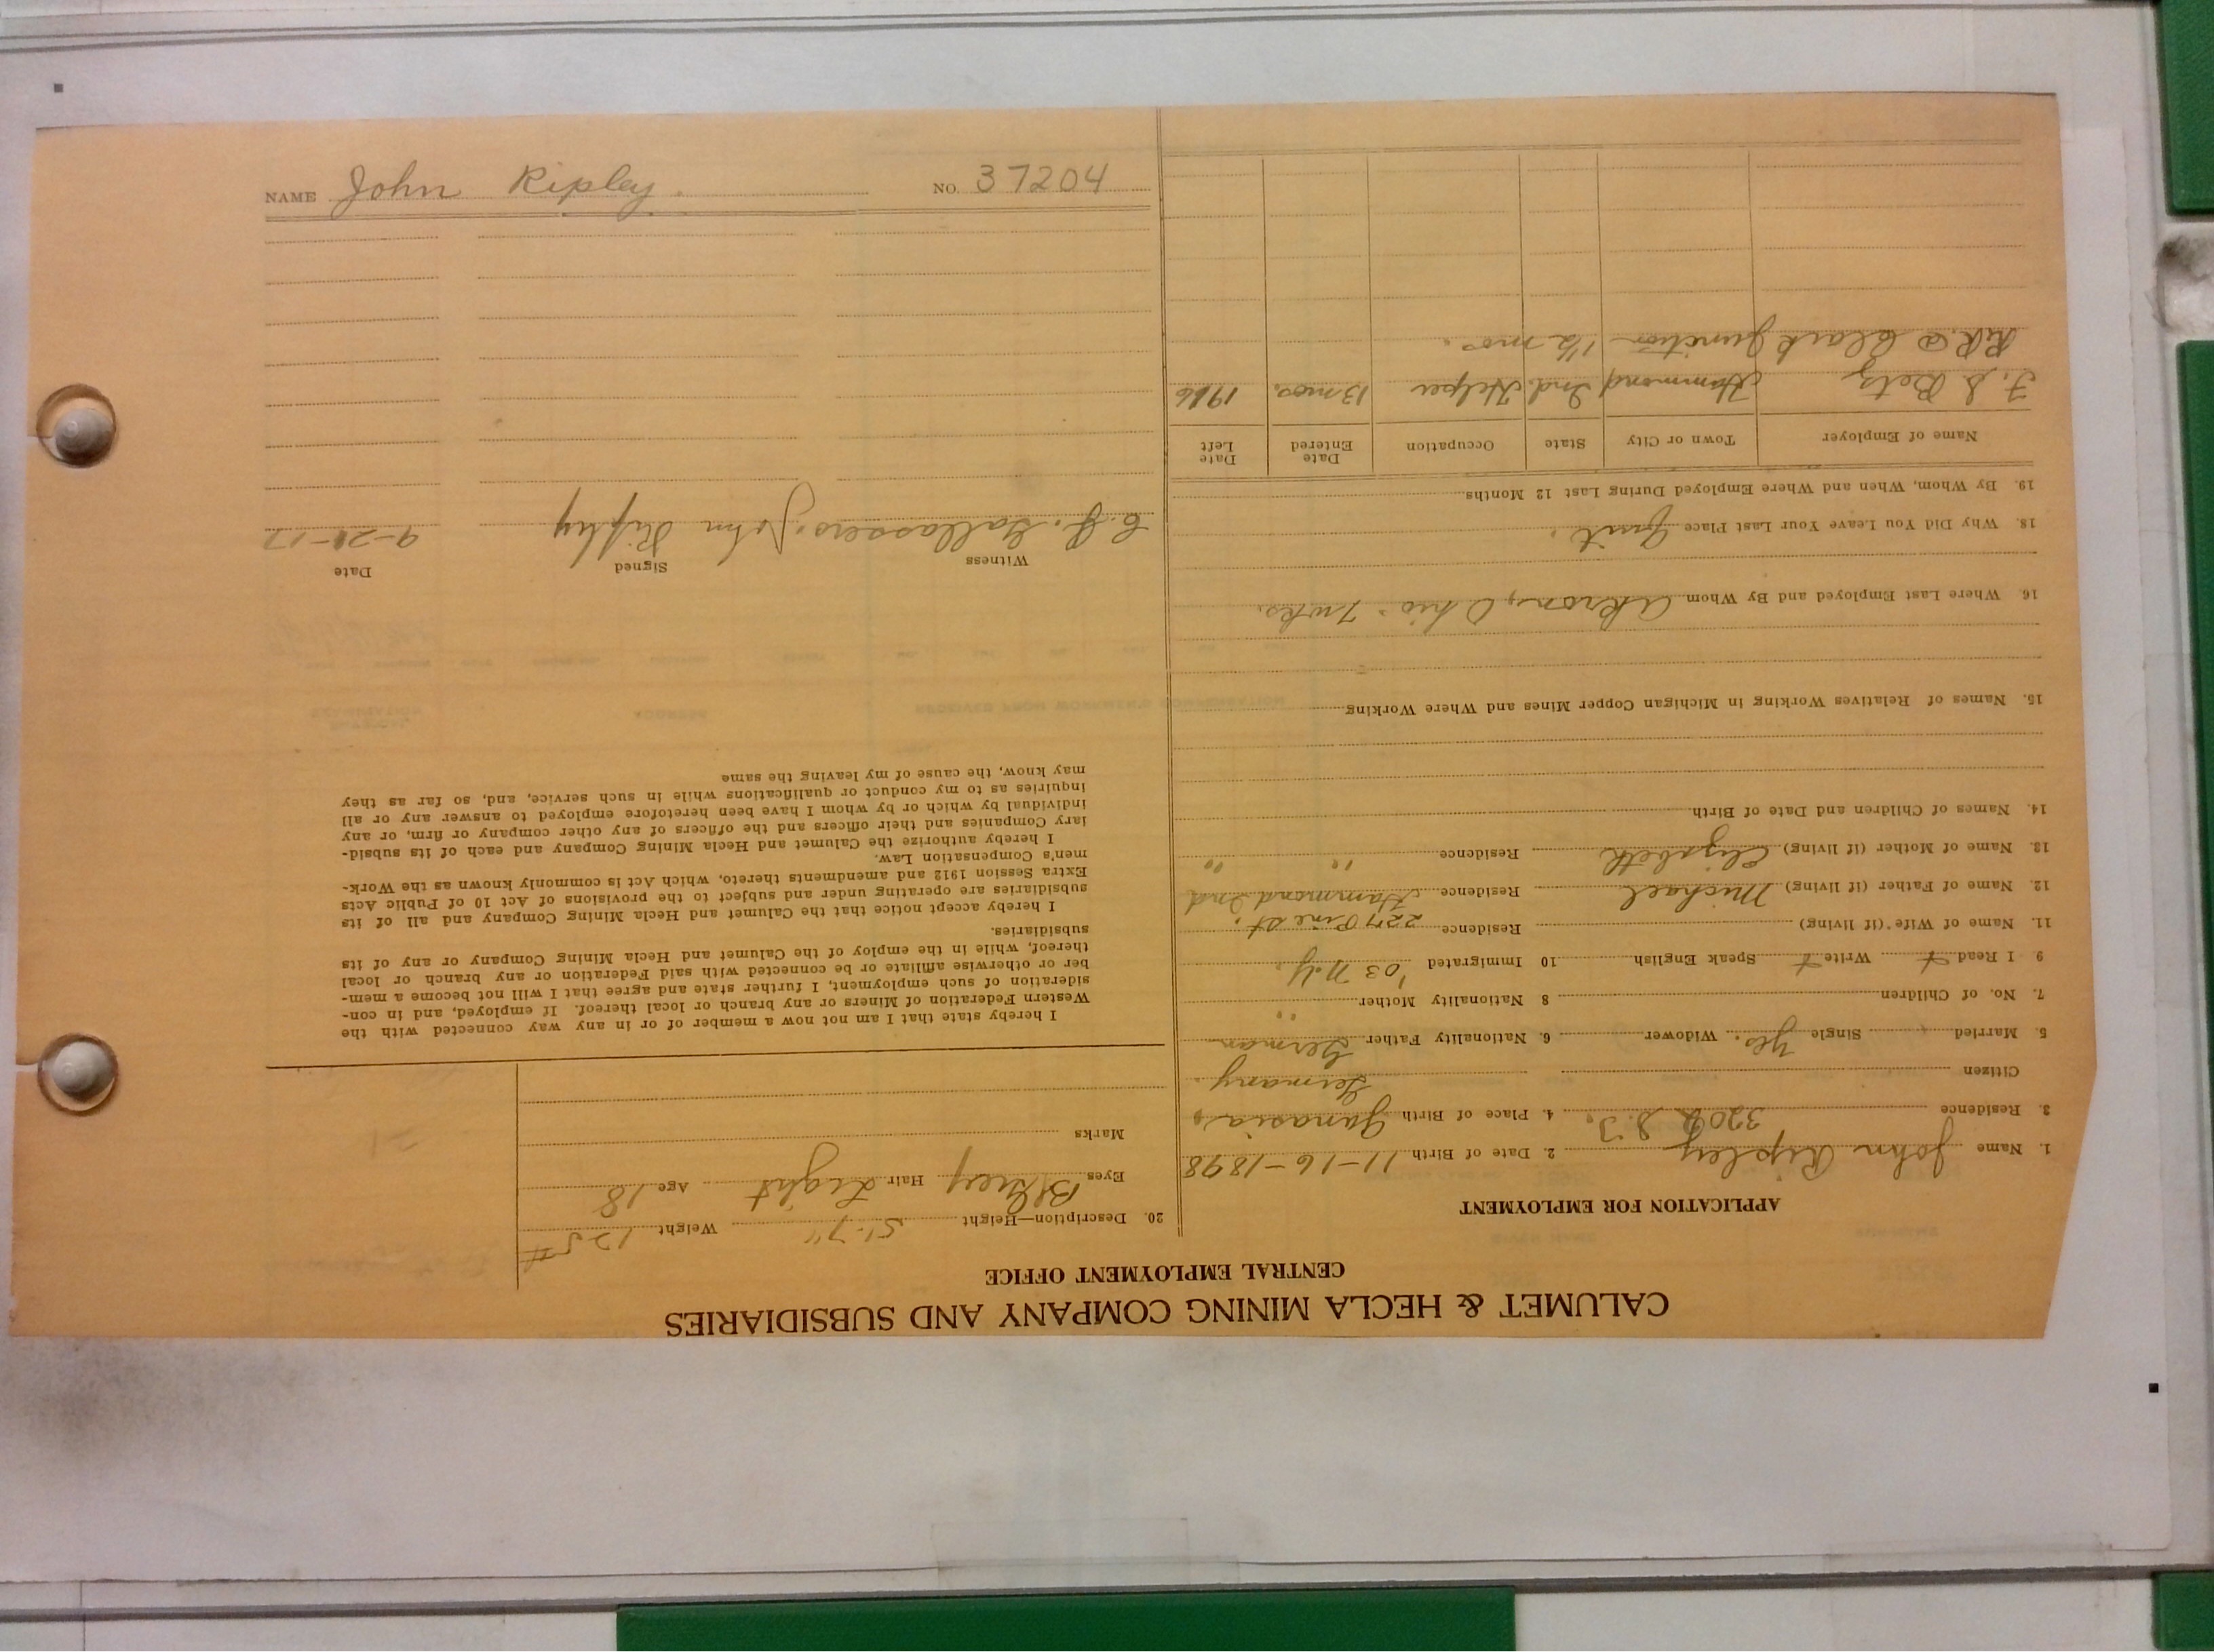 CALUMET & HECLA MINING COMPANY AND SUBSIDIARIES
CENTRAL EMPLOYMENT OFFICE
APPLICATION FOR EMPLOYMENT
1. Name John Ripley 2. Date of Birth 11-16-1898
3. Residence 320 4. Place of Birth
Germany.
Citizen
5. Married Single Yes. Widower 6. Nationality Father German
7. No. of Children 8 Nationality Mother " "
9 I Read Write Speak English 10 Immigrated '03 N.Y.
11. Name of Wife (if living) Residence 227 Pine St.
12. Name of Father (if living) Michael Residence Hammond Ind
13. Name of Mother (if living) Elizabeth Residence " "
14. Names of Children and Date of Birth
15. Names of Relatives Working in Michigan Copper Mines and Where Working
16. Where Last Employed and By Whom Akron, Ohio - 7 wks.
18. Why Did You Leave Your Last Place Quit.
19. By Whom, When and Where Employed During Last 12 Months
Name of Employer Town or City State Occupation Date Entered Date Left
F. S. Betz Hammond Ind. Helper 13 mos. 1916
R.R. @ Clark Junction 1½ mos.
20. Description—Height 5'-7" Weight 125#
Eyes Bl Grey Hair Light Age 18
Marks
I hereby state that I am not now a member of or in any way connected with the
Western Federation of Miners or any branch or local thereof. If employed, and in con-
sideration of such employment, I further state and agree that I will not become a mem-
ber or otherwise affiliate or be connected with said Federation or any branch or local
thereof, while in the employ of the Calumet and Hecla Mining Company or any of its
subsidiaries.
I hereby accept notice that the Calumet and Hecla Mining Company and all of its
subsidiaries are operating under and subject to the provisions of Act 10 of Public Acts
Extra Session 1912 and amendments thereto, which Act is commonly known as the Work-
men's Compensation Law.
I hereby authorize the Calumet and Hecla Mining Company and each of its subsid-
iary Companies and their officers and the officers of any other company or firm, or any
individual by which or by whom I have been heretofore employed to answer any or all
inquiries as to my conduct or qualifications while in such service, and, so far as they
may know, the cause of my leaving the same
Witness Signed Date
John Ripley 9-21-17
NAME John Ripley. NO. 37204